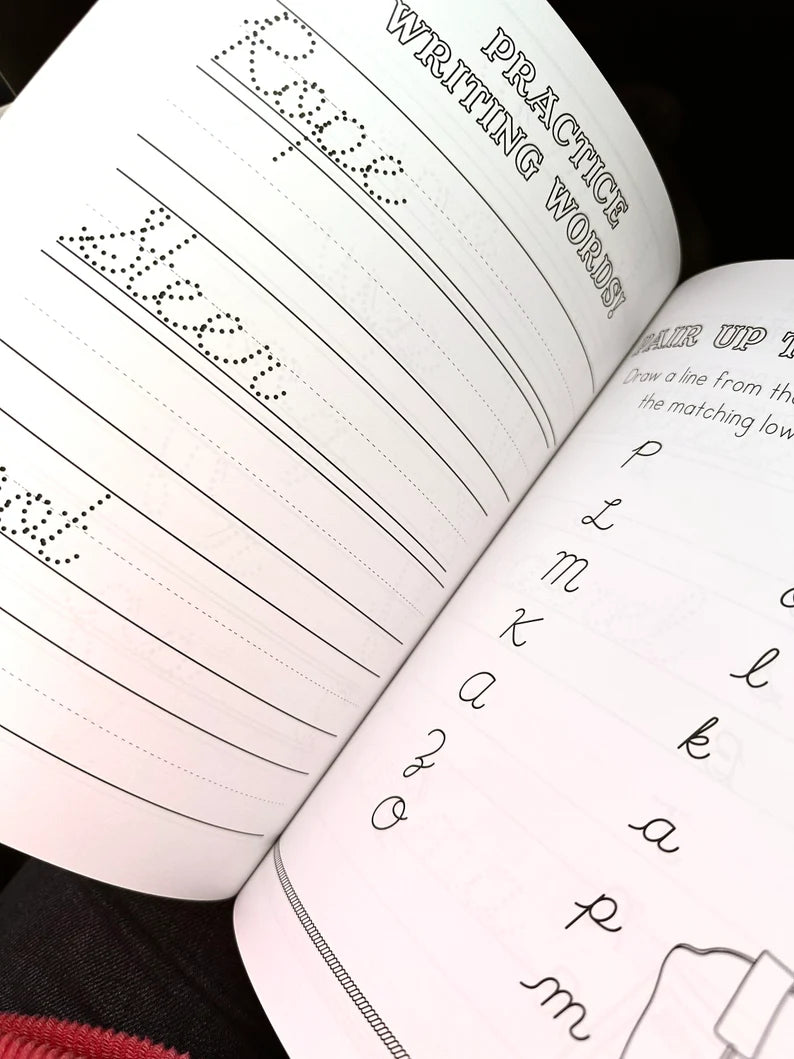 PRACTICE
WRITING WORDS!
Rope
Steer
PAIR UP T
Draw a line from the
the matching low
P
L
M
K
A
Z
O
l
k
a
p
m